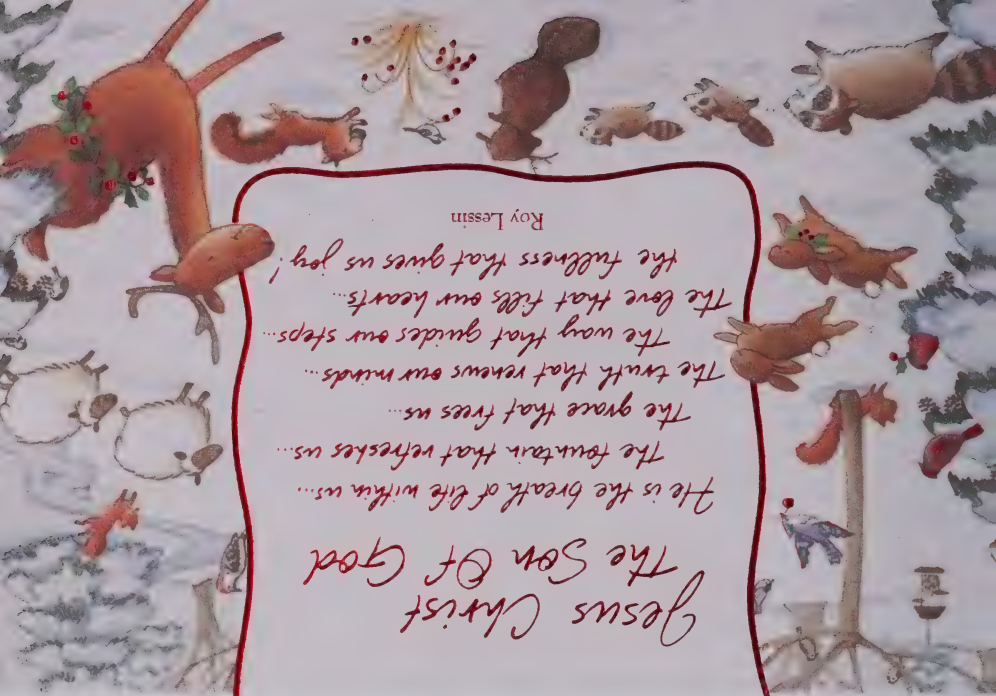 Jesus Christ
The Son Of God
He is the breath of life within us...
The fountain that refreshes us...
The grace that frees us...
The truth that renews our minds...
The way that guides our steps...
The love that fills our hearts...
the fullness that gives us joy!
Roy Lessin